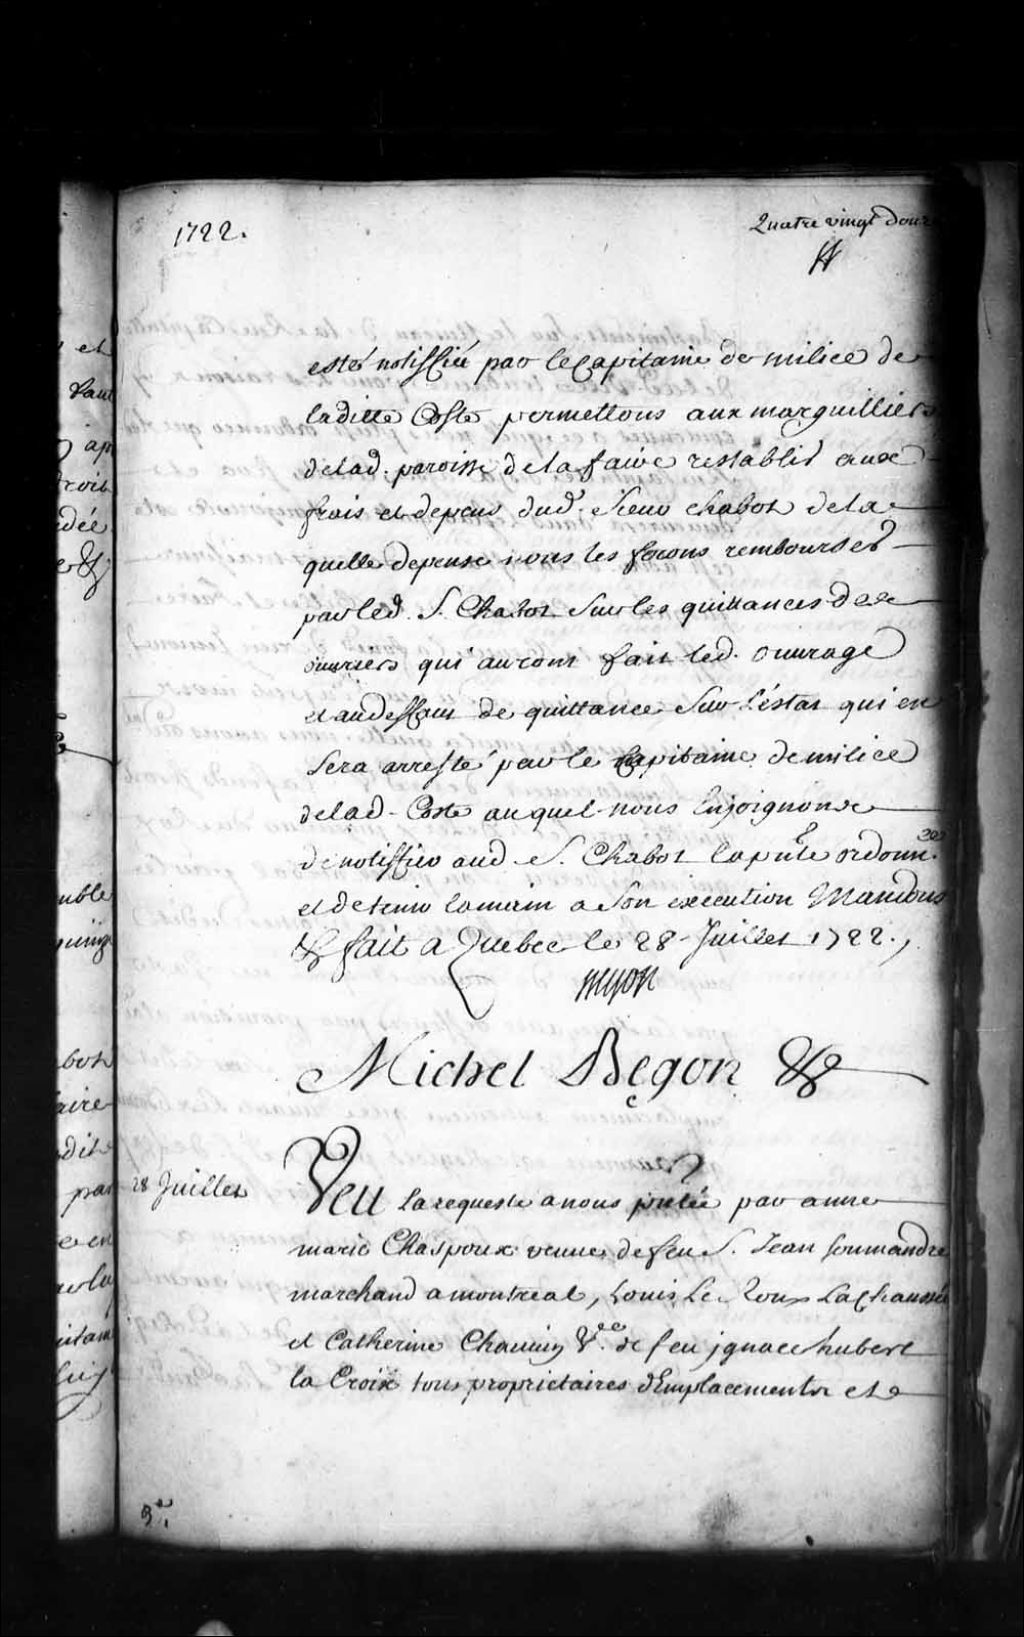 1722.
Quatre vingt douz
esté notiffiée par le Capitaine de milice de
ladite Coste permettons aux marguilliers
de lad. paroisse de la faire restablir aux
frais et depens dud. Sieur Chabot de la
quelle depense nous les ferons rembourser
par led. S. Chabot sur les quittances des
ouvriers qui auront fait led. ouvrage
et au deffaut de quittance sur l'estat qui en
sera arresté par le Capitaine de milice
de lad. Coste auquel nous Enjoignons
de notiffier aud. S. Chabot la pnte ordonn.ce
et de tenir la main a son execution Mandons
&c fait a Quebec le 28 Juillet 1722.,
Michel Begon &c
28 Juillet
Veu la requeste a nous pntée par anne
marie Chaspoux veuve de feu S. Jean Soumandre
marchand a montreal, Louis Le Roux La Chaussée
et Catherine Chauvin V.ve de feu jgnace hubert
la Croix tous proprietaires d'Emplacements et
et
ap
dée
e &c
bot
aire
dit
par
e en